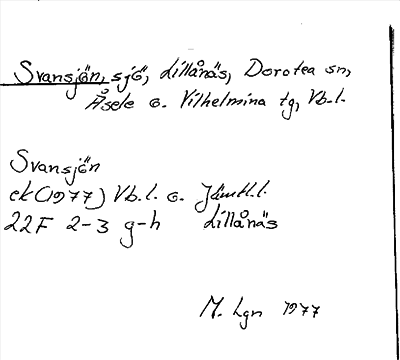 Svansjön, sjö, Lillånäs, Dorotea sn,
Åsele o. Vilhelmina tg, Vb.l.
Svansjön
ek (1977) Vb.l. o. Jämtl.l.
22F 2-3 g-h Lillånäs
M. Lgn 1977